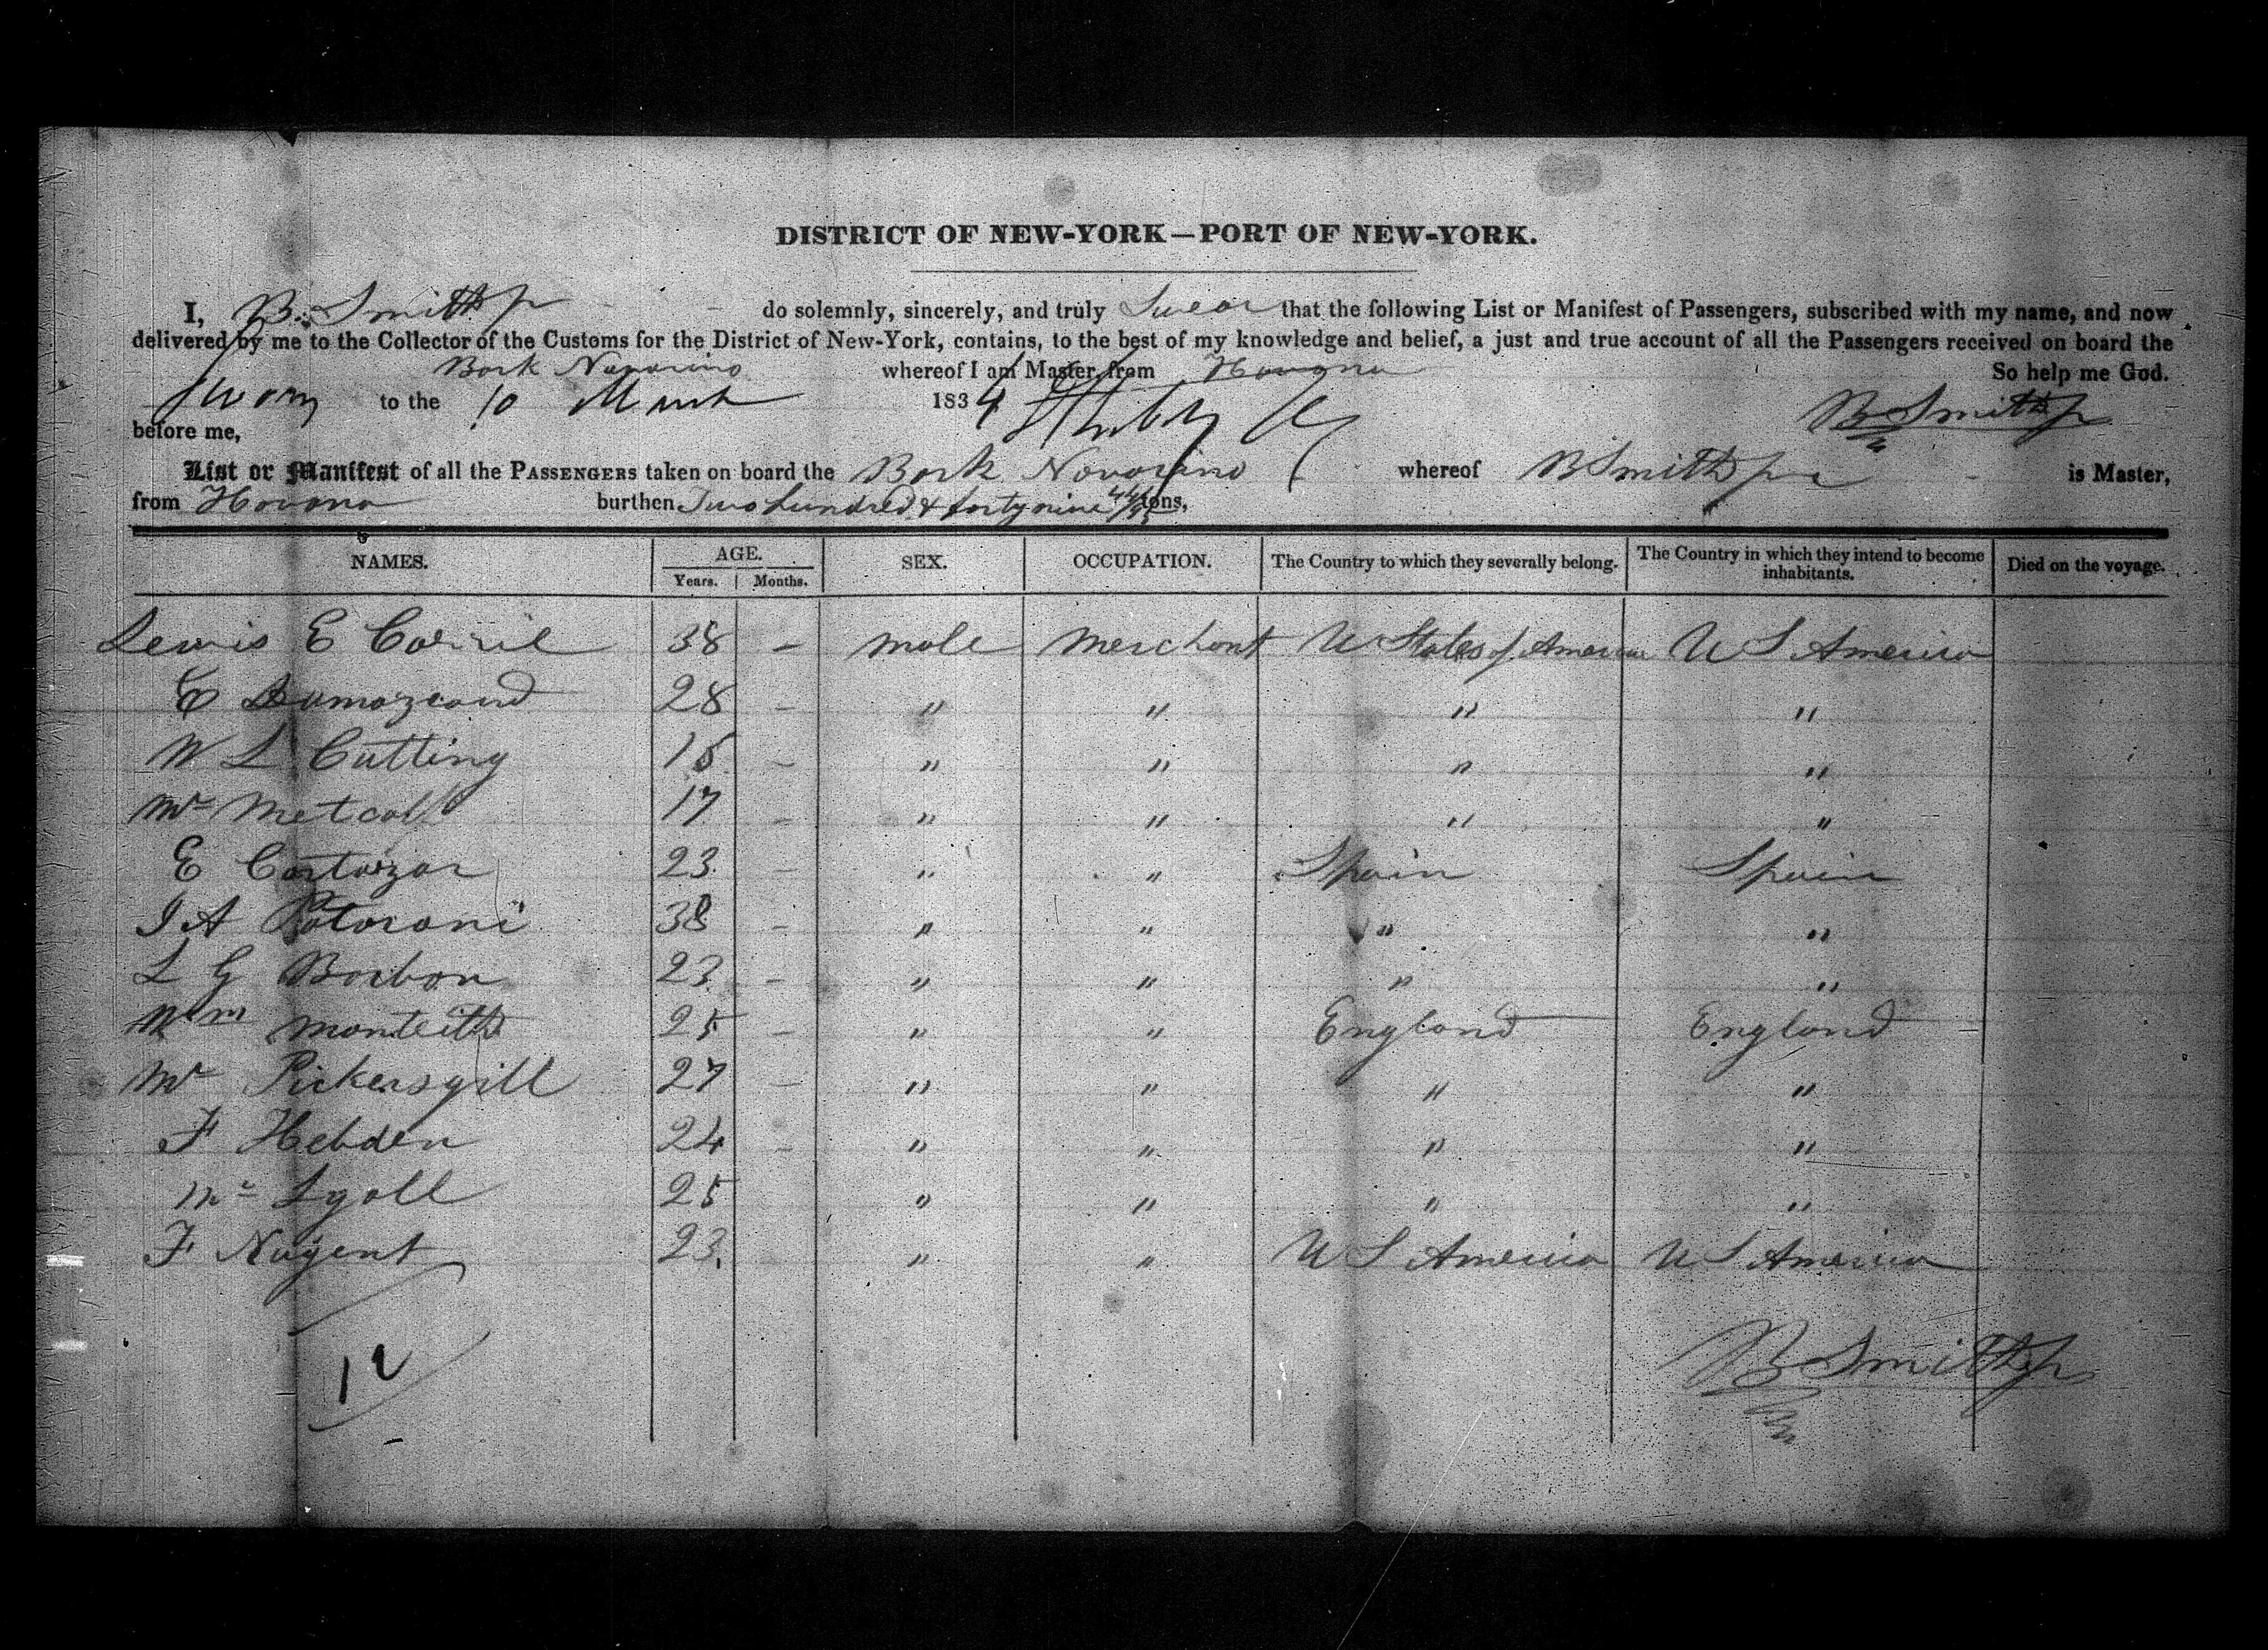 DISTRICT OF NEW-YORK—PORT OF NEW-YORK.
I, B. Smith Jr do solemnly, sincerely, and truly Swear that the following List or Manifest of Passengers, subscribed with my name, and now
delivered by me to the Collector of the Customs for the District of New-York, contains, to the best of my knowledge and belief, a just and true account of all the Passengers received on board the
Bark Navarino whereof I am Master, from Havana So help me God.
Sworn to the 10 March 1834 B Smith Jr
before me,
List or Manifest of all the PASSENGERS taken on board the Bark Navarino whereof B Smith Jr is Master,
from Havana burthen Two hundred & forty nine 44/95 tons,
NAMES. AGE. SEX. OCCUPATION. The Country to which they severally belong. The Country in which they intend to become inhabitants. Died on the voyage.
Years. Months.
Lewis E 38 - male merchant U States of America U S America
E 28 - " " " "
W L Cutting 15 - " " " "
Mr Metcalf 17 - " " " "
E Cortazar 23 - " " Spain Spain
J A 38 - " " " "
L G Borbon 23 - " " " "
Wm Monteith 25 - " " England England
Mr Pickersgill 27 - " " " "
F Hebden 24 - " " " "
Mr Lyall 25 " " " "
F Nugent 23. " " U S America U S America
12
B Smith Jr